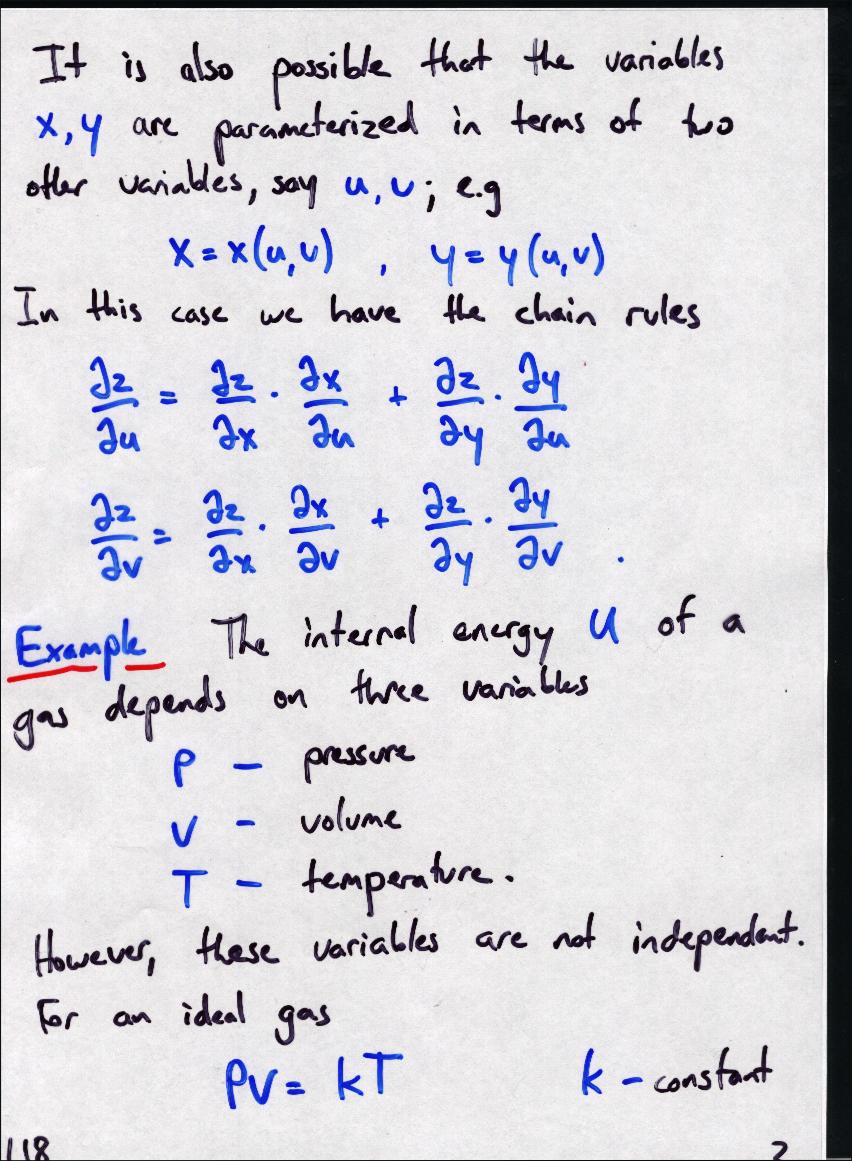 It is also possible that the variables
x, y are parameterized in terms of two
other variables, say u, v; e.g
x = x(u,v) , y = y(u,v)
In this case we have the chain rules
∂z/∂u = ∂z/∂x · ∂x/∂u + ∂z/∂y · ∂y/∂u
∂z/∂v = ∂z/∂x · ∂x/∂v + ∂z/∂y · ∂y/∂v .
Example The internal energy U of a
gas depends on three variables
P – pressure
V – volume
T – temperature.
However, these variables are not independent.
For an ideal gas
PV = kT k – constant
118 2